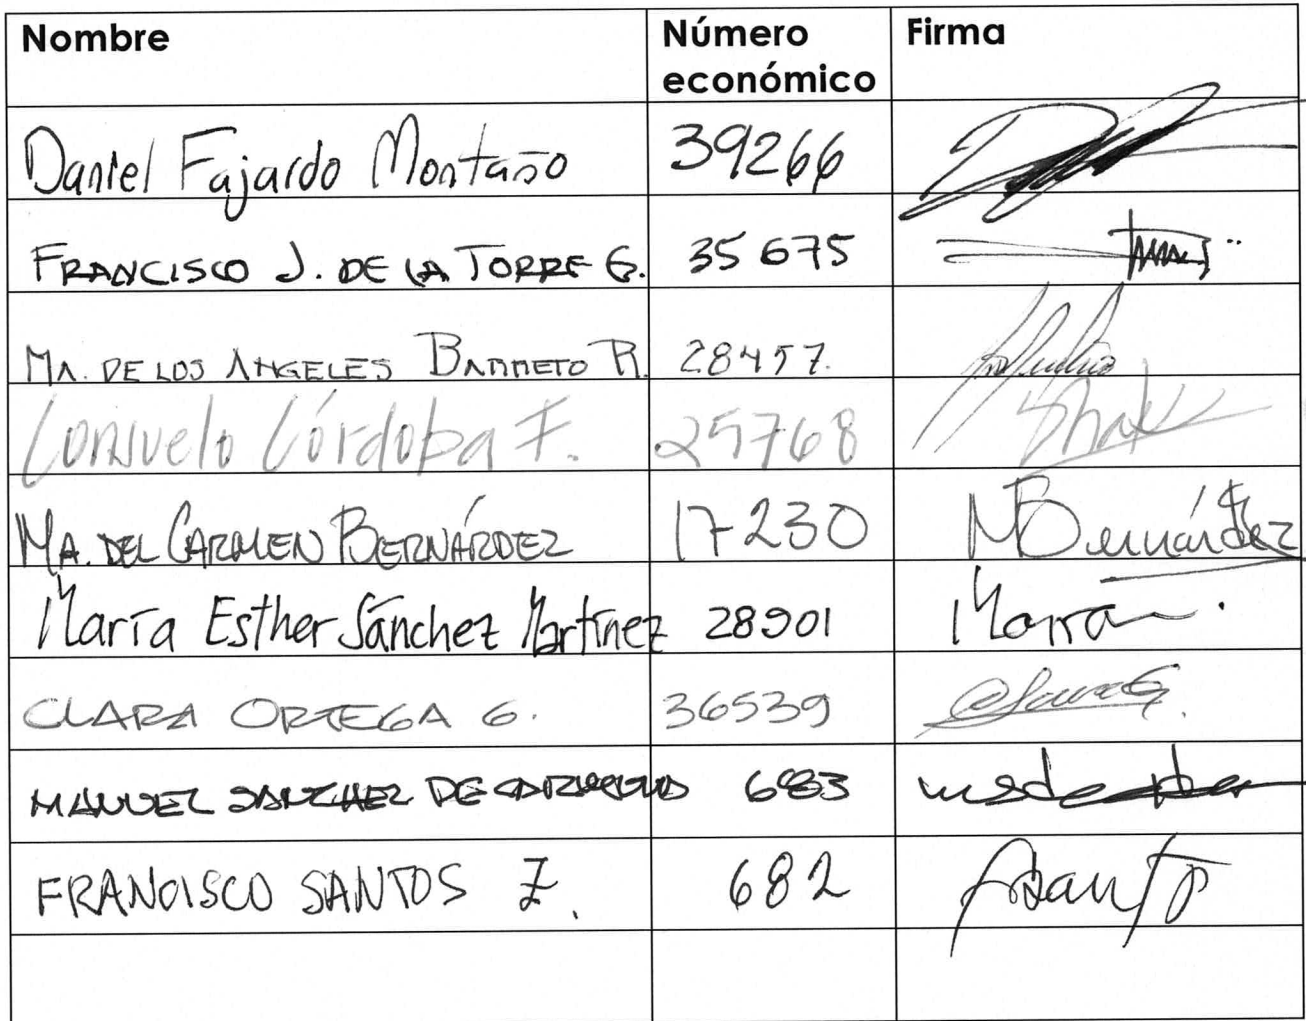 Nombre Número económico Firma
Daniel Fajardo Montaño 39266
FRANCISCO J. DE LA TORRE G. 35675
MA. DE LOS ANGELES BARRETO R. 28457.
Consuelo Córdoba F. 25768
MA. DEL CARMEN BERNÁRDEZ 17230 MBernárdez
María Esther Sánchez Martínez 28901
CLARA ORTEGA G. 36539
MANUEL SANCHEZ DE 683
FRANCISCO SANTOS Z. 682